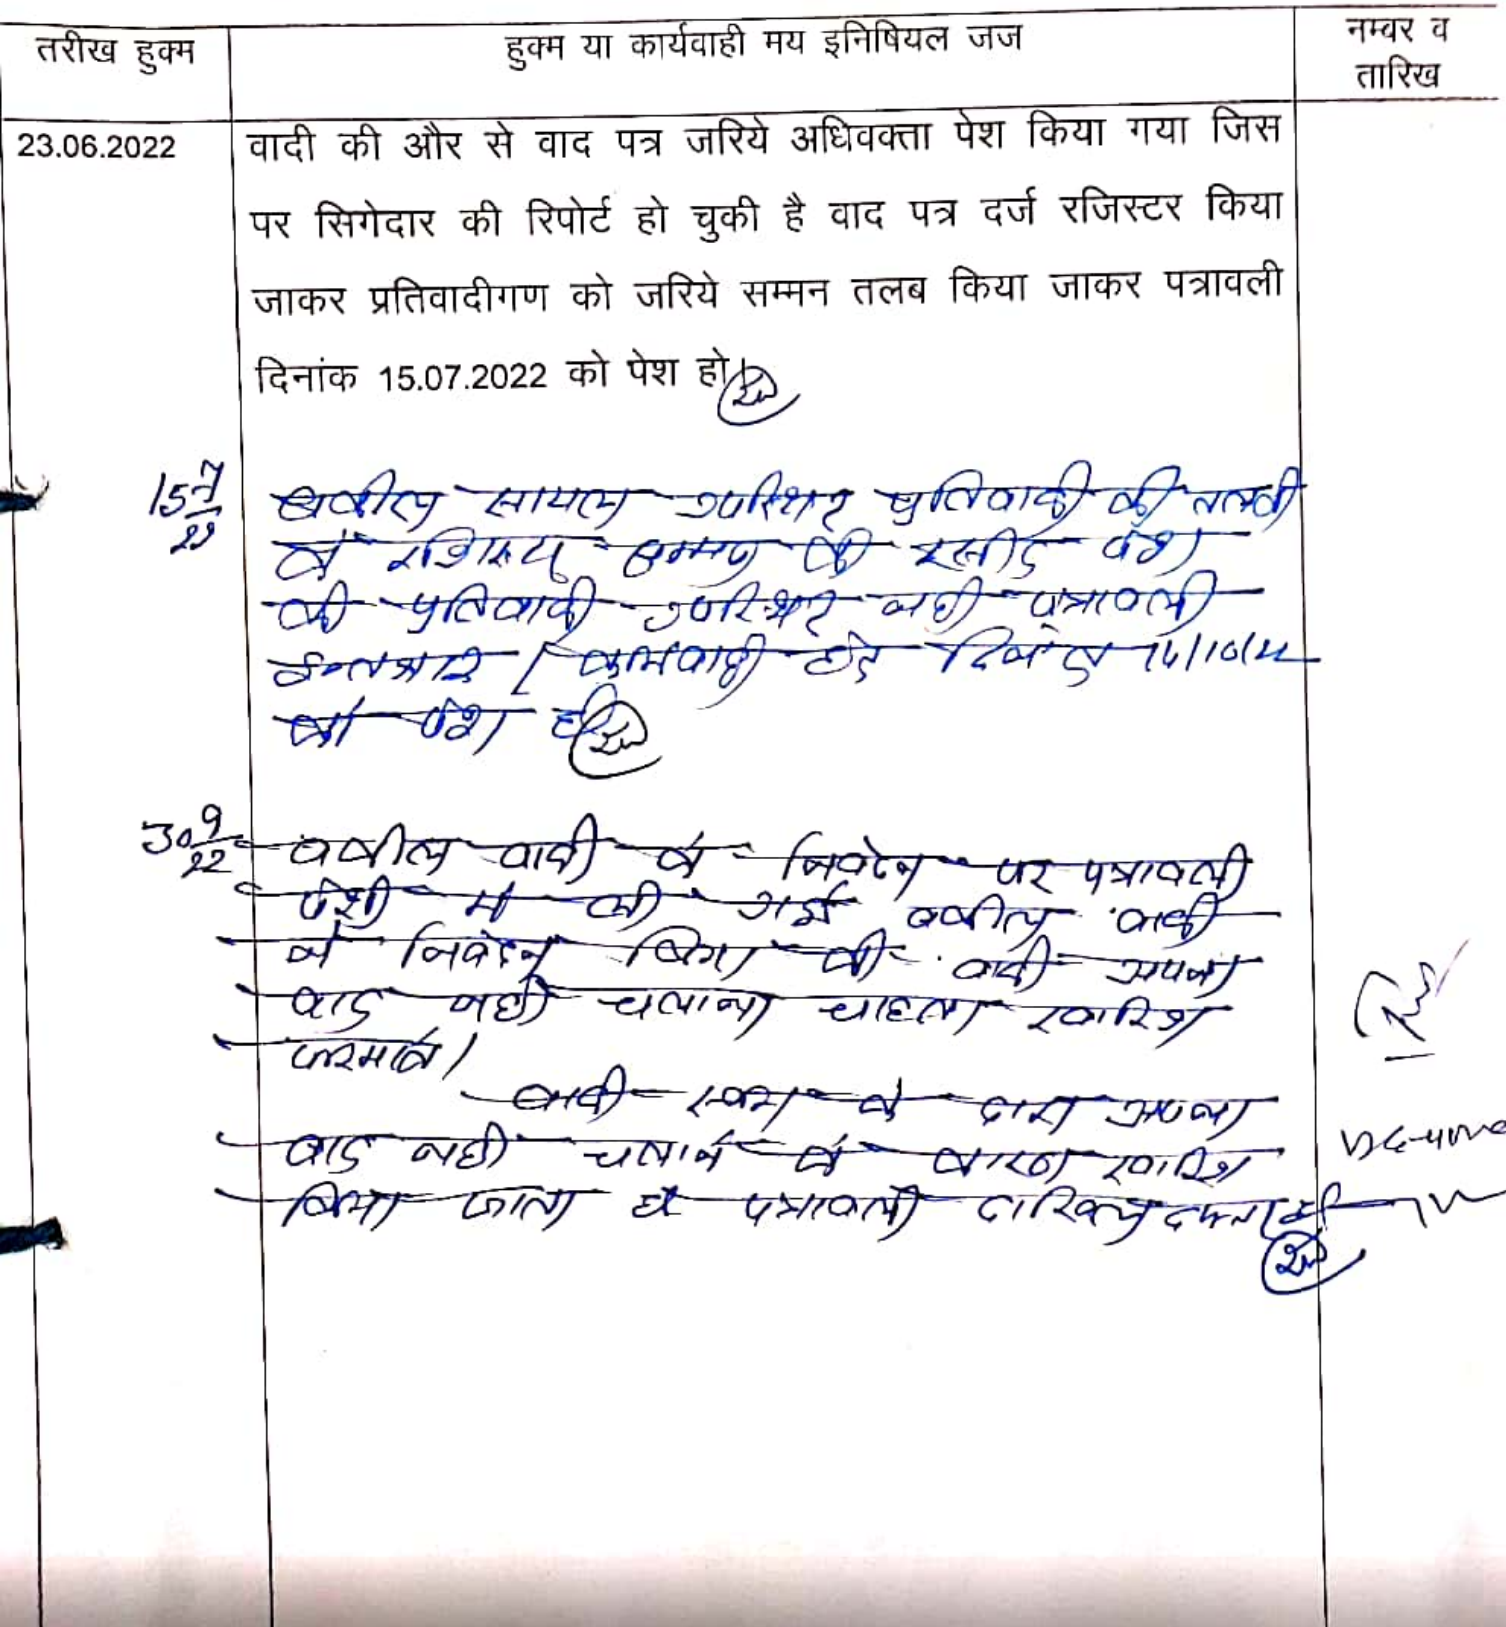 तरीख हुक्म
हुक्म या कार्यवाही मय इनिषियल जज
नम्बर व
तारिख
23.06.2022
वादी की और से वाद पत्र जरिये अधिवक्ता पेश किया गया जिस
पर सिगेदार की रिपोर्ट हो चुकी है वाद पत्र दर्ज रजिस्टर किया
जाकर प्रतिवादीगण को जरिये सम्मन तलब किया जाकर पत्रावली
दिनांक 15.07.2022 को पेश हो
15 7/22
वकील सायल उपस्थित प्रतिवादी की तलबी
के रजिस्टर्ड सम्मन की रसीद पेश
की प्रतिवादी उपस्थित नही पत्रावली
इन्तजार / कार्यवाही हेतु दिनांक 14/10/22
को पेश हो
30 9/22
वकील वादी के निवेदन पर पत्रावली
पेशी में ली गई वकील वादी
ने निवेदन किया की वादी अपना
वाद नही चलाना चाहता खारिज
फरमावे।
वादी स्वयं के द्वारा अपना
वाद नही चलाने के कारण खारिज
किया जाता है पत्रावली दाखिल दफ्तर हो